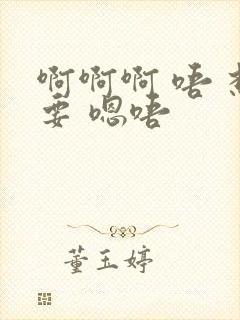 啊啊啊 唔 想
要 嗯唔
董玉婷